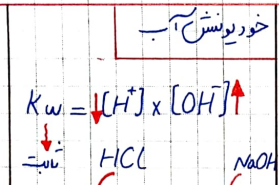 خود یونش آب
Kw = ↓[H⁺] × [OH⁻]↑
ثابت HCl NaOH